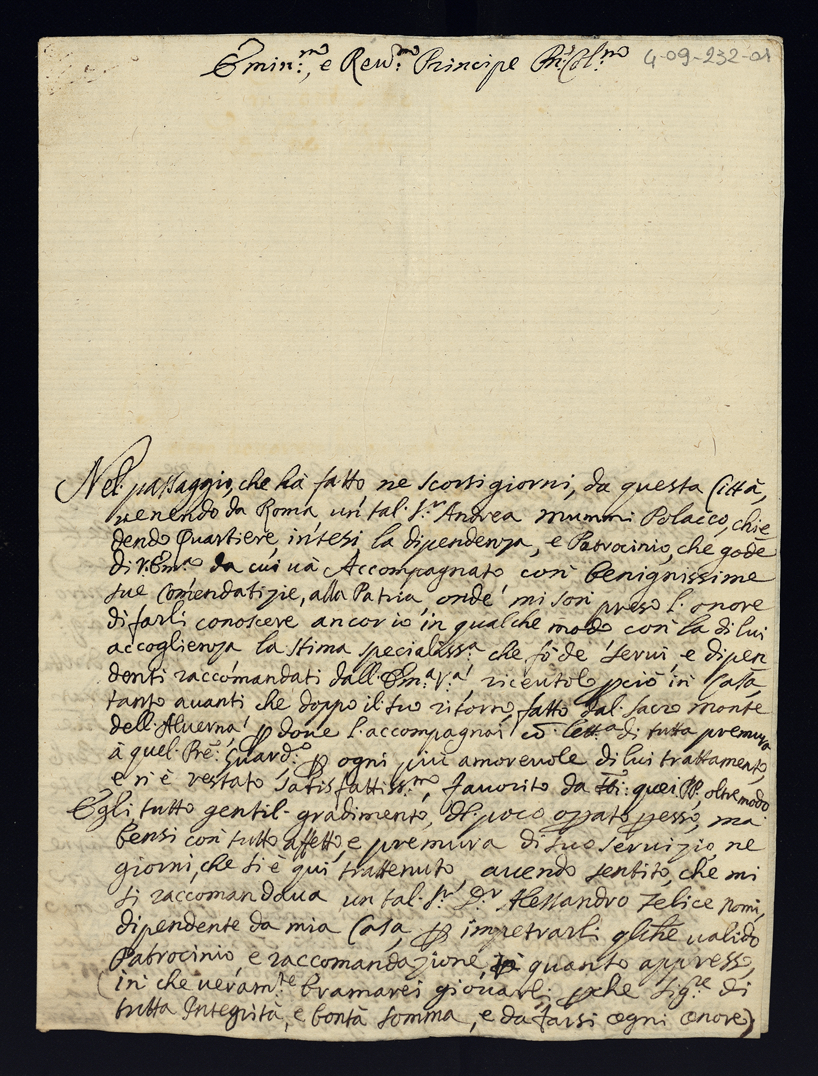 Emin.mo, e Reu.mo Principe Pn Col.mo
4-09-232-01
Nel passaggio, che hà fatto ne scorsi giorni, da questa Città,
uenendo da Roma un tal S.r Andrea Mummi Polacco, chie
dendo Quartiere intesi la dipendenza, e Patrocinio, che gode
di V. Em.a da cui uà Accompagnato con benignissime
sue Comendatizie, alla Patria onde mi son preso l'onore
di farli conoscere ancor io in qualche modo con la di lui
accoglienza la stima specialiss.a che fò de serui e dipen
denti raccomandati dall' Em.a V.a riceutolo pciò in Casa,
tanto auanti che doppo il suo ritorno, fatto dal Sacro Monte
dell' Aluerna, p doue l'accompagnai cõ lett.a di tutta premura
à quel Pre Guard.o p ogni più amoreuole di lui trattamento,
e n'è restato Satisfattiss.mo, fauorito da quei PP. oltremodo
Egli tutto gentil gradimento, del poco oprato presso, ma
bensi con tutto affetto, e premura di suo seruizio, ne
giorni, che si è qui trattenuto, auendo sentito, che mi
si raccomandaua un tal S.r D.r Alessandro Felice Pomi,
dipendente da mia Casa, p impetrarli qlche ualido
Patrocinio e raccomandazione, quanto appresso,
(in che ueram.te bramarei giouarli, pche Sig.re di
tutta Integrità, e bontà somma, e da farsi ogni onore)